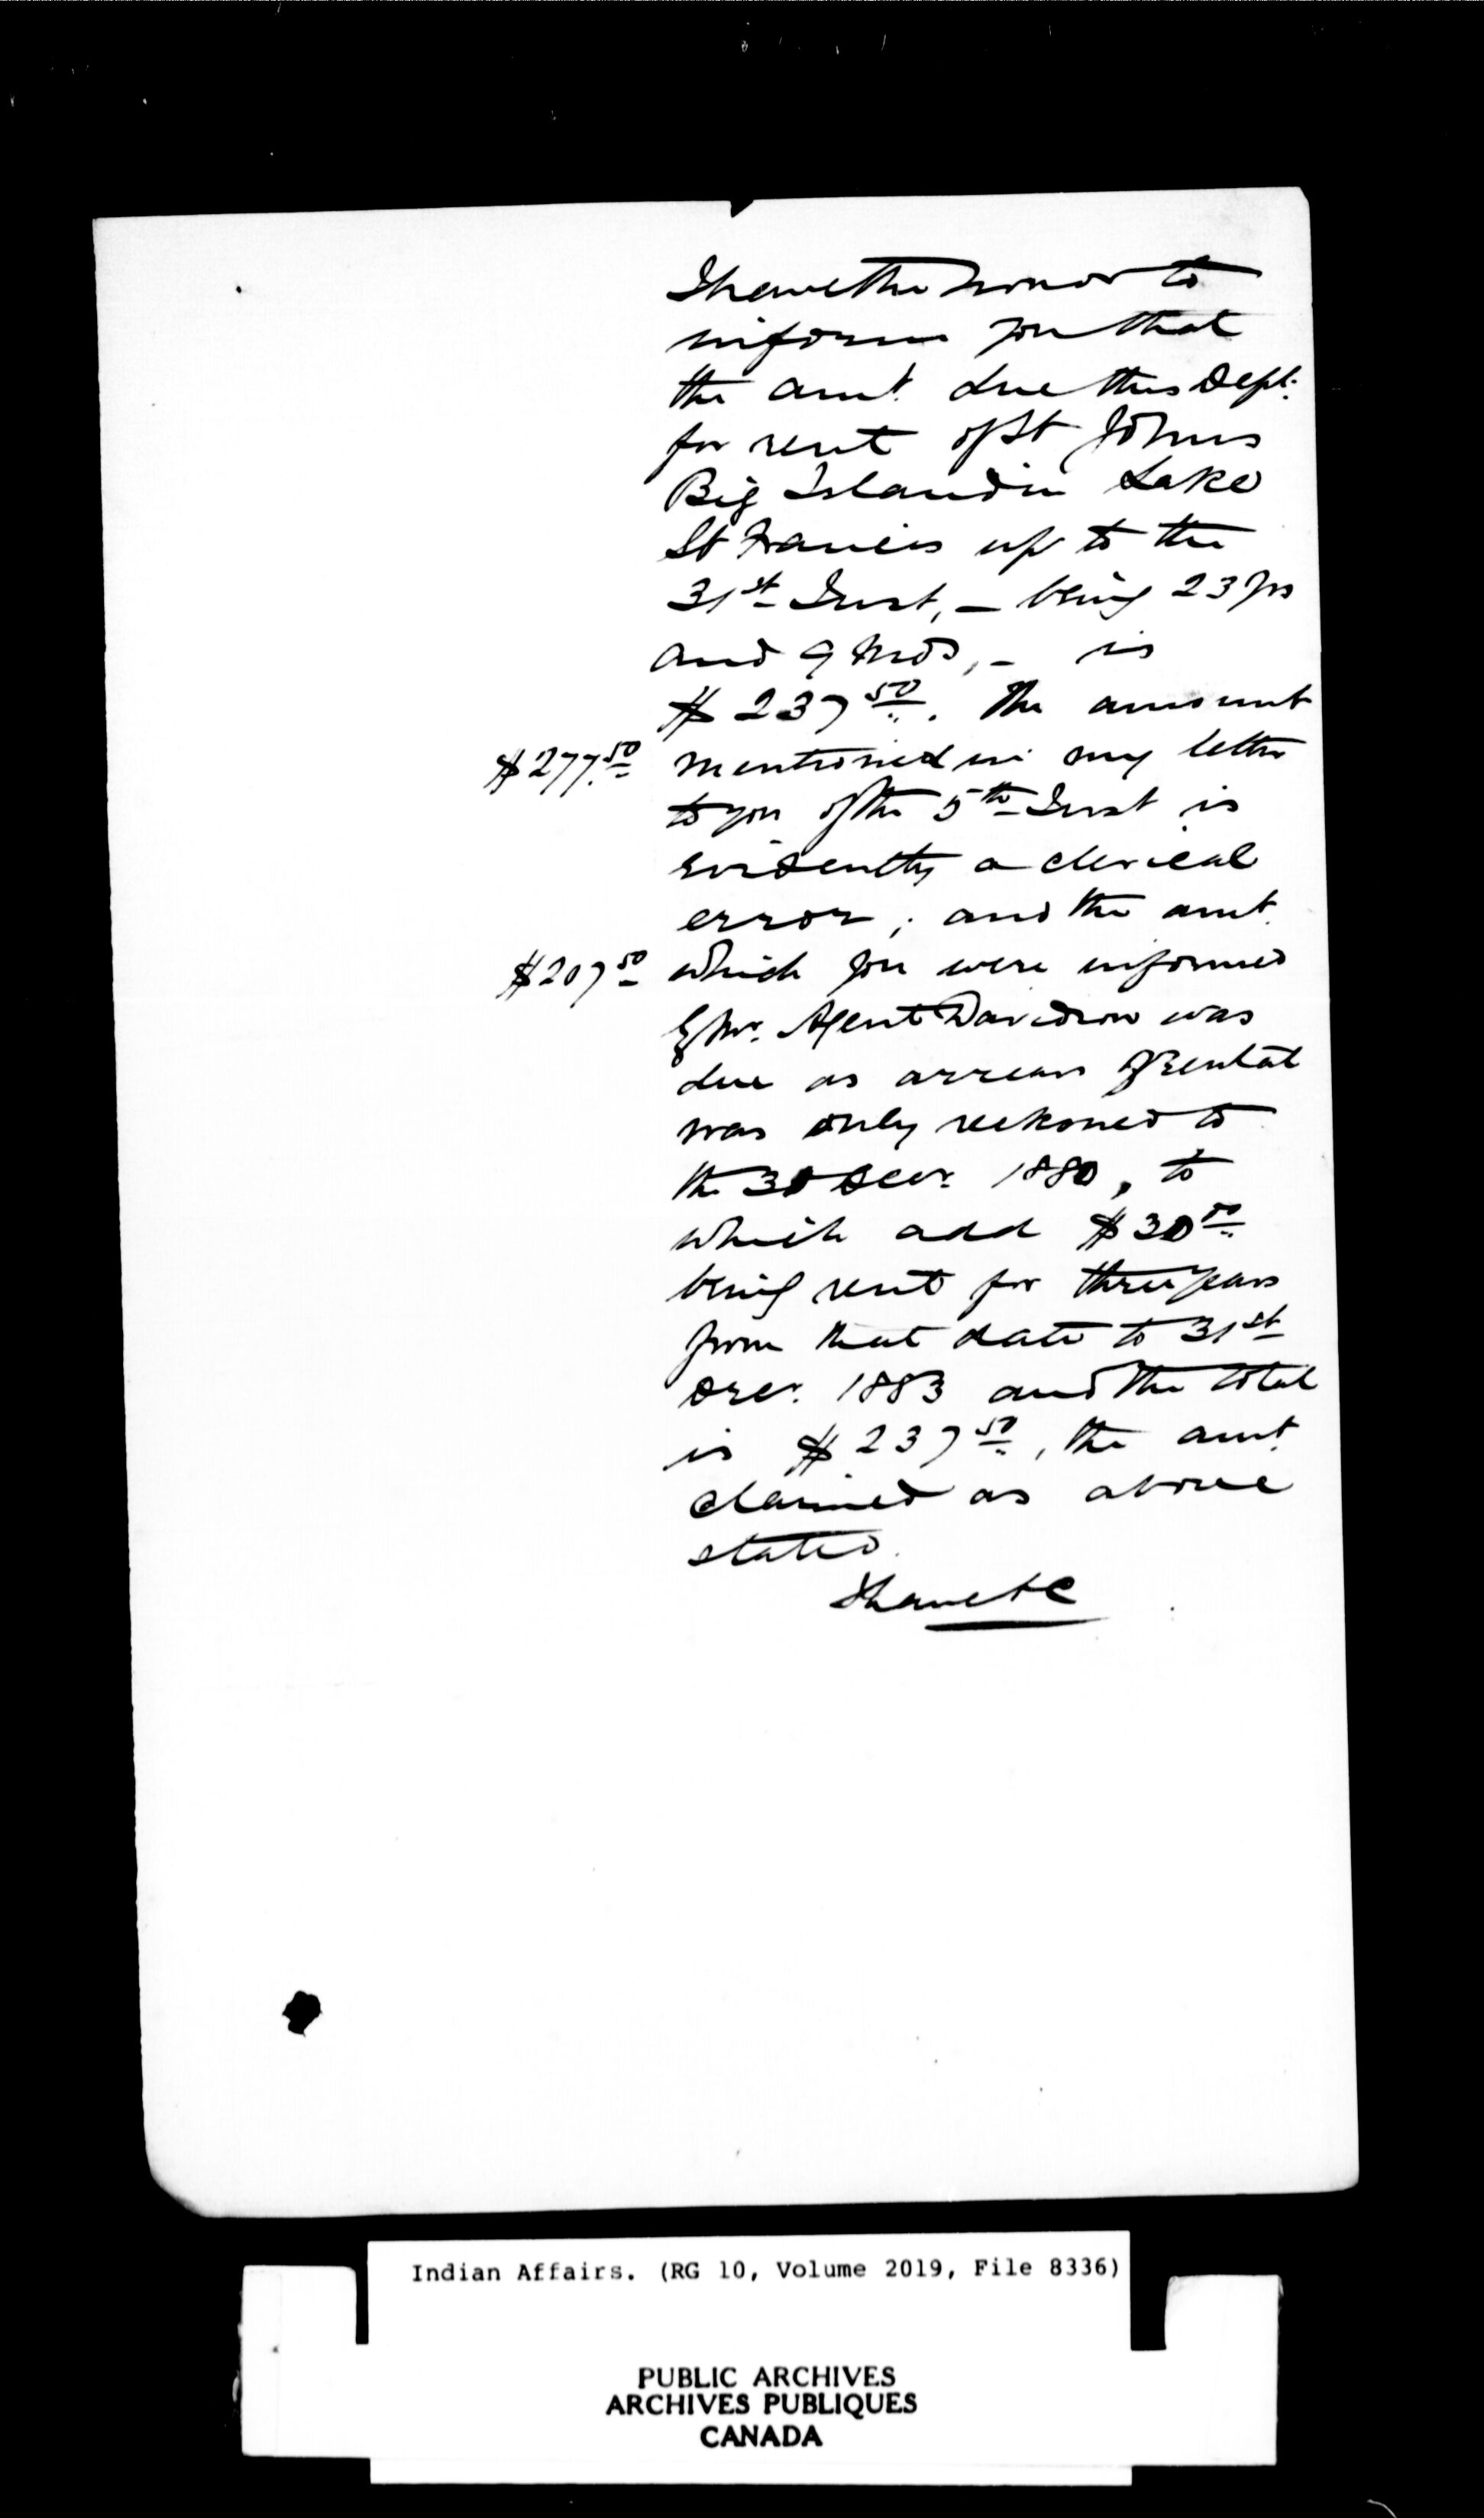 I have the honor to
inform you that
the amt. due this Dept.
for rent of St Johns
Big Island in Lake
St Francis up to the
31st Inst, – being 23 yrs
and 9 mos, – is
$ 237 50. The amount
$277.50 mentioned in my letter
to you of the 5th Inst is
evidently a clerical
error; and the amt.
$207 50 which you were informed
by Mr. Agent Davidson was
due as arrears of rental
was only reckoned to
the 31 Decr. 1880, to
which add $30 00
being rent for three years
from that date to 31st
Decr. 1883 and the total
is $ 237 50, the amt.
claimed as above
stated.
I have &c
Indian Affairs. (RG 10, Volume 2019, File 8336)
PUBLIC ARCHIVES
ARCHIVES PUBLIQUES
CANADA